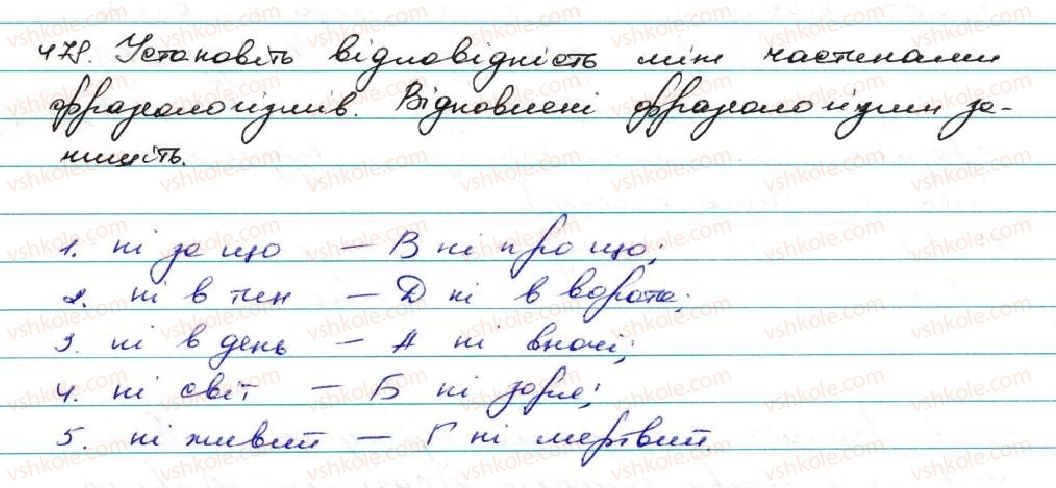 478. Установіть відповідність між частинами
фразеологізмів. Відновлені фразеологізми за-
пишіть.
1. ні за що — В ні про що;
2. ні в тин — Д ні в ворота;
3. ні в день — А ні вночі;
4. ні світ — Б ні зоря;
5. ні живий — Г ні мертвий.